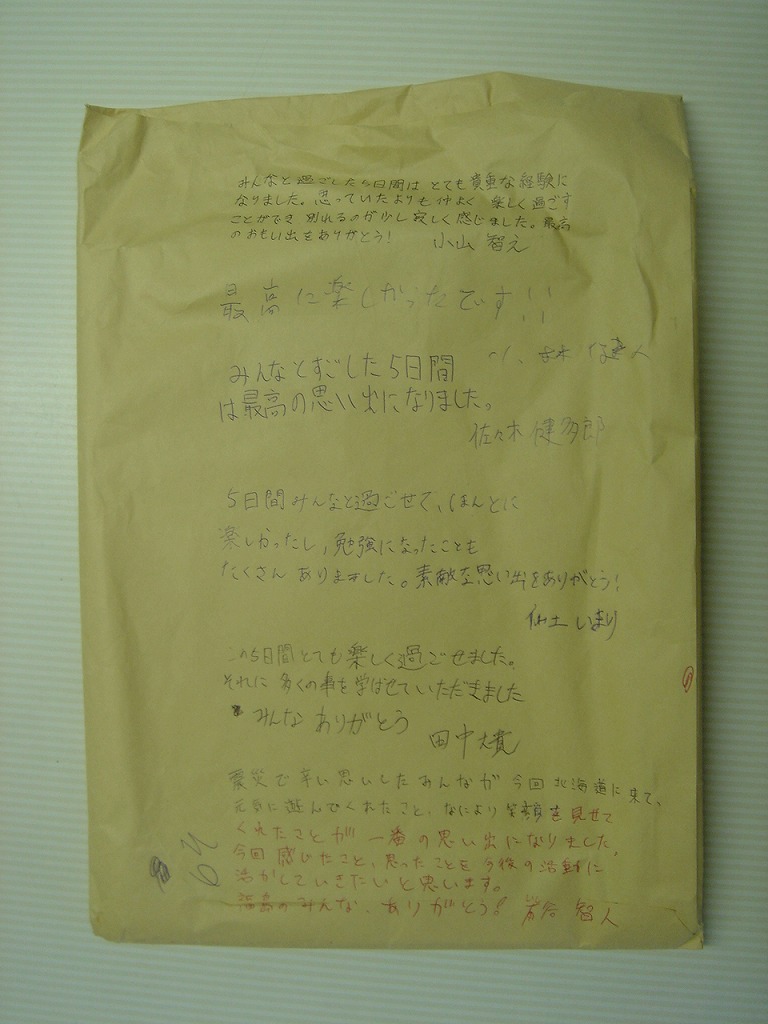 みんなと過ごした5日間は とても貴重な経験に
なりました。思っていたよりも仲よく 楽しく過ごす
ことができ 別れるのが少し寂しく感じました。最高
のおもい出をありがとう! 小山 智え
最高に楽しかったです!!
小林
みんなとすごした5日間
は最高の思い出になりました。
佐々木 健多郎
5日間みんなと過ごせて、ほんとに
楽しかったし、勉強になったことも
たくさん ありました。素敵な思い出をありがとう!
いまり
この5日間とても楽しく過ごせました。
それに 多くの事を学ばせていただきました
みんな ありがとう
田中 大貴
震災で辛い思いしたみんなが 今回 北海道に来て、
元気に遊んでくれたこと、なにより 笑顔を見せて
くれたことが 一番の思い出になりました。
今回 感じたこと、思ったことを 今後の活動に
活かしていきたいと思います。
福島のみんな、ありがとう! 岩谷 智人